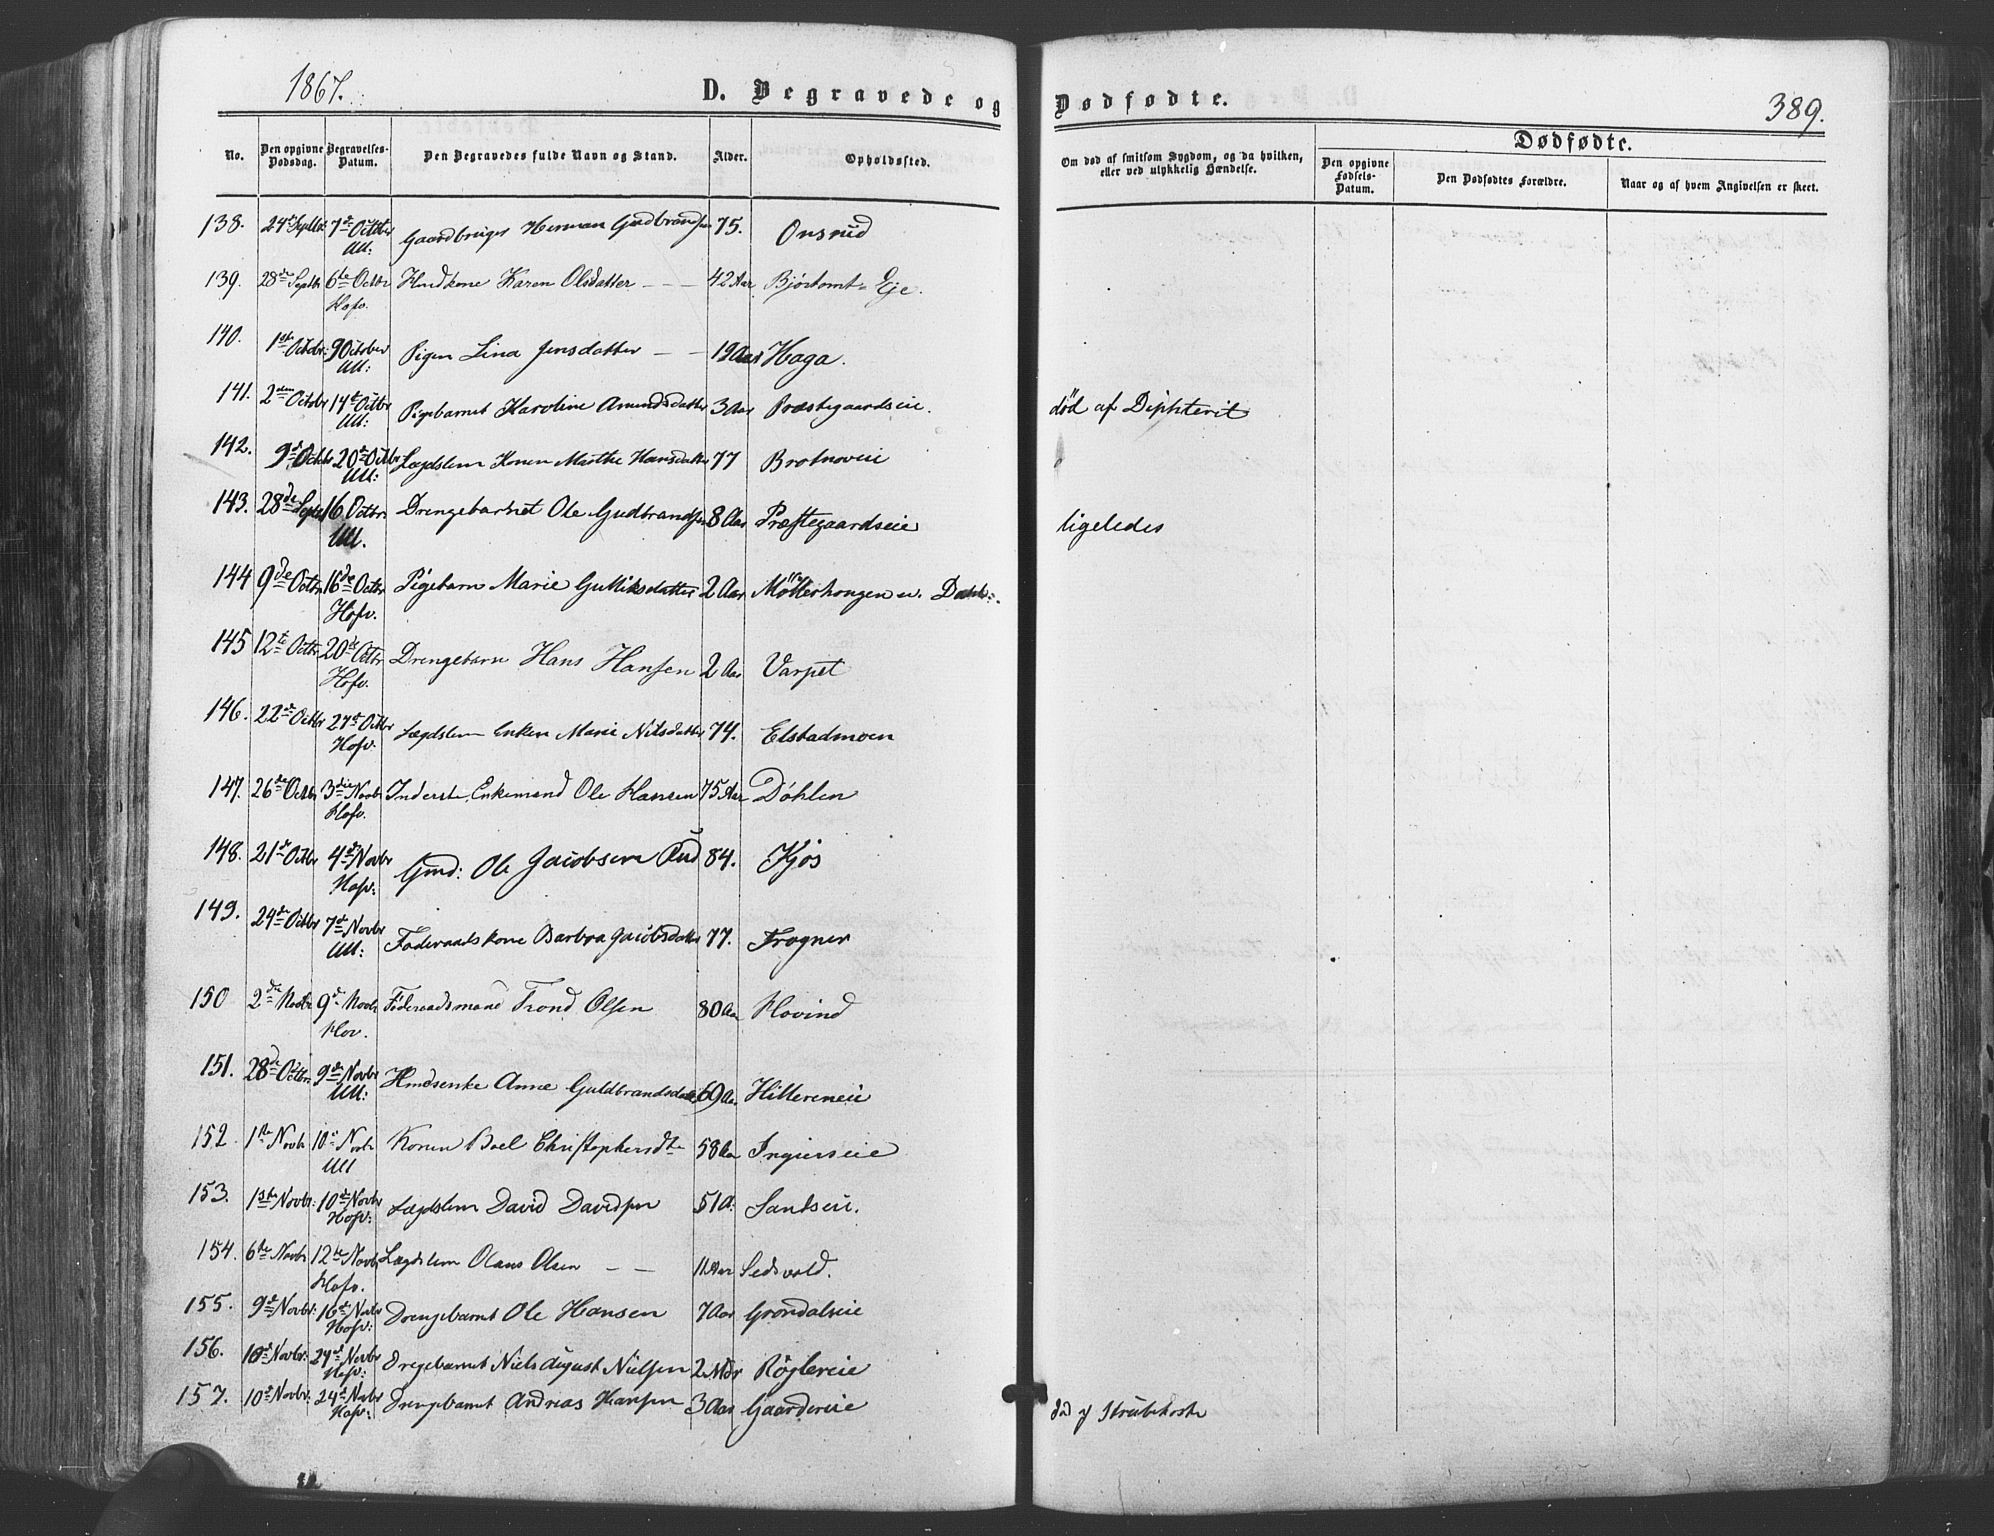 1867.
D. Begravede og Dødfødte.
389.
Dødfødte.
No.
Den opgivne Dødsdag.
Begravelses-Datum.
Den Begravedes fulde Navn og Stand.
Alder.
Opholdssted.
Om død af smitsom Sygdom, og da hvilken, eller ved ulykkelig Hændelse.
Den opgivne Fødsels-Datum.
Den Dødfødtes Forældre.
Naar og af hvem Angivelsen er skeet.
138. 24de Septbr 7de Octber Ull: Gaardbruger Herman Gudbrandsen 75. Onsrud
139. 28de Septbr 6te Octbr Hofv. Huskone Karen Olsdatter - - - 42 Aar Bjørtomt-Eje.
140. 1ste Octobr: 9 October Ull: Pigen Lina Jensdatter - - 19 Aar Haga.
141. 2den October 14de Octbr Ull: Pigebarnet Karoline Amundsdatter 3 Aar Præstegaardseie. død af Diphterit
142. 9de Octobr 20de Octbr Ull: Lægdslem Konen Marthe Hansdatter 77 Brotnoveie
143. 28de Septbr 16 Octbr. Ull. Drengebarnet Ole Gudbrandsen 8 Aar Præstegaardseie ligeledes
144 9de Octbr 16de Octbr Hofv. Pigebarn Marie Gulliksdatter 2 Aar Møllerhougen u. Dahl.
145 12te Octbr 20de Octbr Hofv. Drengebarn Hans Hansen 2 Aar Varpet
146. 22de Octbr 27de Octbr Hofv: Lægdslem Enken Marie Nilsdatter 74. Elstadmoen
147. 26de Octbr 3die Novbr Hofv. Inderst, Enkemand Ole Hansen 75 Aar Døhlen
148. 21de Octbr 4de Novbr Hofv: Gmd: Ole Jacobsen Rud 84. Kjos
149. 24de Octbr 7de Novbr Ull: Føderaadskone Barbra Jacobsdatter 77. Frogner
150 2den Novbr 9de Novbr Hov. Føderaadsmand Trond Olsen 80 Aar Hovind
151. 28de Octbr. 9de Novbr Ull: Husenke Anne Guldbrandsdatter 69 Aar. Hillereneie
152 1ste Novbr 10de Novbr Ull Konen Boel Christophersdtr 58 Aar Ingierseie
153. 1ste Novbr. 10de Novbr Hofv: Lægdslem David Davidsen 51 A: Sandseie.
154. 6te Novbr 12te Novbr Hofv. Lægdslem Olaus Olsen - - 11 Aar Sedvold.
155. 9de Novbr: 16de Novbr Hofv: Drengebarnet Ole Hansen 7 Aar Grøndalseie
156. 10de Novbr: 24de Novbr Hofv: Drengebarnet Niels August Nielsen 2 Mdr Røglereie
157. 10de Novbr: 24de Novbr Hofv: Drengebarnet Andreas Hansen 3 Aar Gaardereie død af Strubehoste